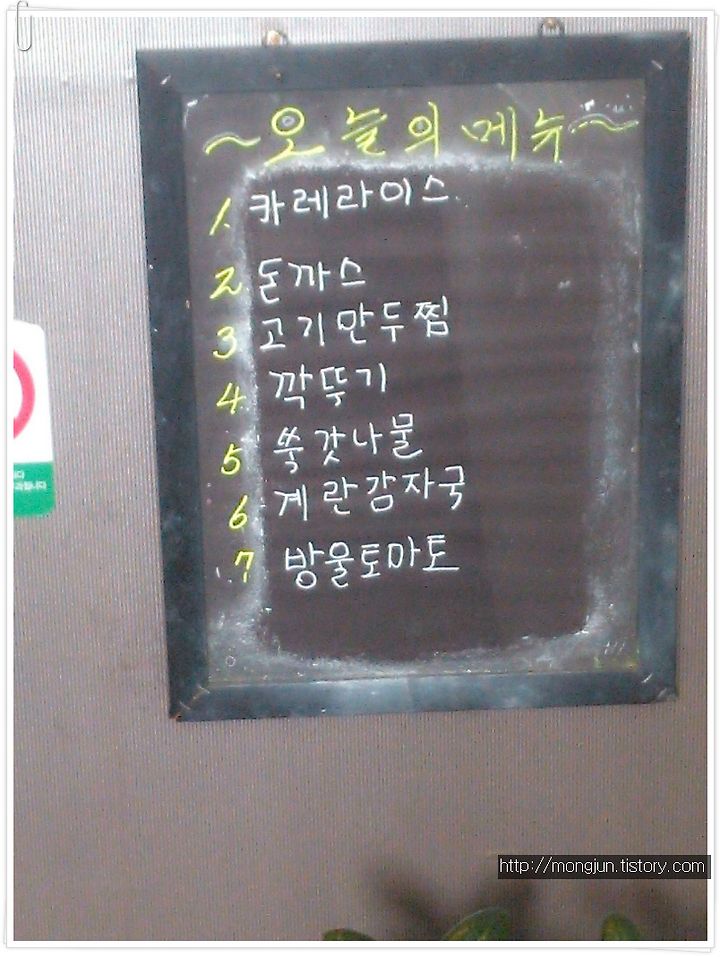 ~오늘의 메뉴~
1. 카레라이스
2 돈까스
3 고기만두찜
4. 깍뚜기
5 쑥갓나물
6. 계란감자국
7 방울토마토
http://mongjun.tistory.com